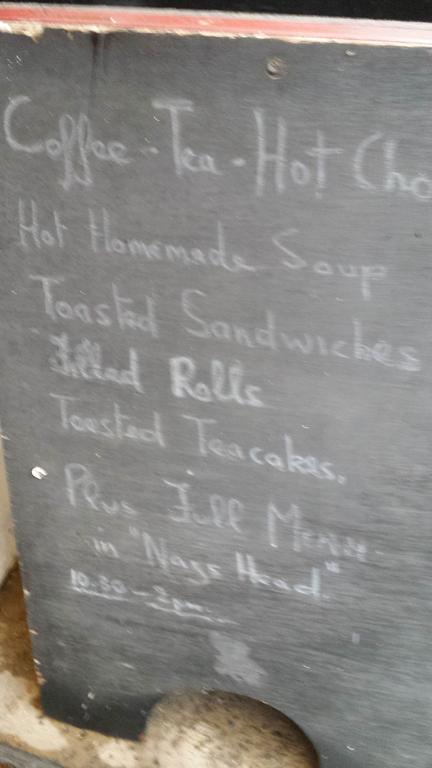 Coffee - Tea - Hot Cho
Hot Homemade Soup
Toasted Sandwiches
Filled Rolls
Toasted Teacakes.
Plus Full Menu
in "Nags Head"
10.30 - 2pm